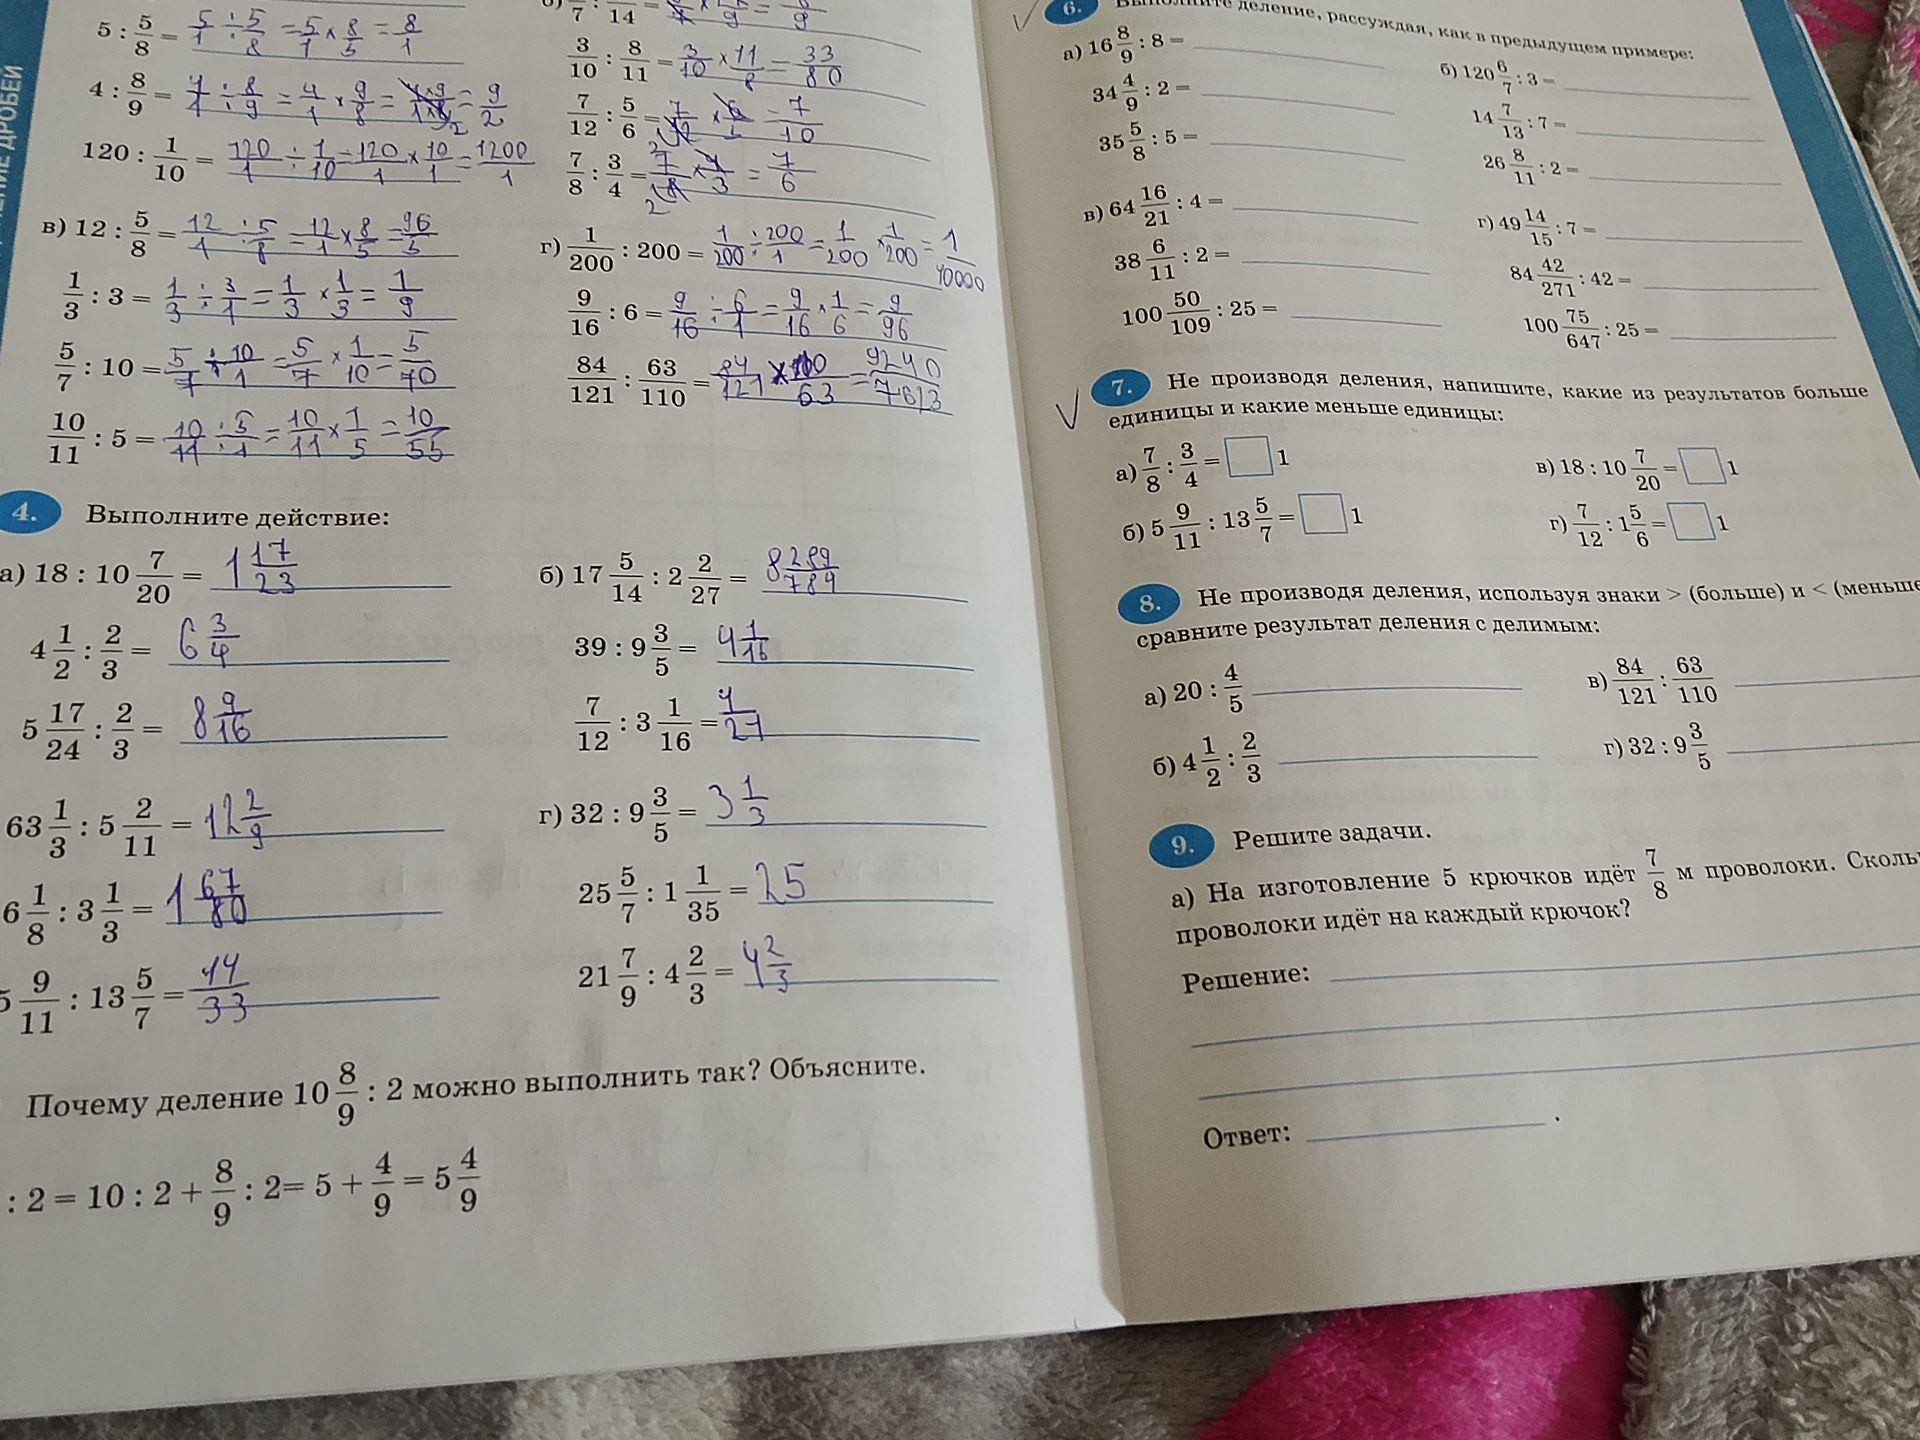 5 : 5/8 = 5/1 ÷ 5/8 = 5/1 × 8/5 = 8/1
4 : 8/9 = 4/1 ÷ 8/9 = 4/1 × 9/8 = 4×9/1×8 2 = 9/2
120 : 1/10 = 120/1 ÷ 1/10 = 120/1 × 10/1 = 1200/1
в) 12 : 5/8 = 12/1 ÷ 5/8 = 12/1 × 8/5 = 96/5
1/3 : 3 = 1/3 ÷ 3/1 = 1/3 × 1/3 = 1/9
5/7 : 10 = 5/7 ÷ 10/1 = 5/7 × 1/10 = 5/70
10/11 : 5 = 10/11 ÷ 5/1 = 10/11 × 1/5 = 10/55
3/10 : 8/11 = 3/10 × 11/8 = 33/80
7/12 : 5/6 = 7/12 × 6/5 = 7/10
7/8 : 3/4 = 7/8 × 4/3 = 7/6
г) 1/200 : 200 = 1/200 ÷ 200/1 = 1/200 × 1/200 = 1/40000
9/16 : 6 = 9/16 ÷ 6/1 = 9/16 × 1/6 = 9/96
84/121 : 63/110 = 84/121 × 110/63 = 9240/7613
4. Выполните действие:
а) 18 : 10 7/20 = 1 17/23
4 1/2 : 2/3 = 6 3/4
5 17/24 : 2/3 = 8 9/16
63 1/3 : 5 2/11 = 12 2/9
6 1/8 : 3 1/3 = 1 67/80
5 9/11 : 13 5/7 = 14/33
б) 17 5/14 : 2 2/27 = 8 289/784
39 : 9 3/5 = 4 1/16
7/12 : 3 1/16 = 4/21
г) 32 : 9 3/5 = 3 1/3
25 5/7 : 1 1/35 = 25
21 7/9 : 4 2/3 = 4 2/3
Почему деление 10 8/9 : 2 можно выполнить так? Объясните.
: 2 = 10 : 2 + 8/9 : 2 = 5 + 4/9 = 5 4/9
6. Выполните деление, рассуждая, как в предыдущем примере:
а) 16 8/9 : 8 =
34 4/9 : 2 =
35 5/8 : 5 =
в) 64 16/21 : 4 =
38 6/11 : 2 =
100 50/109 : 25 =
б) 120 6/7 : 3 =
14 7/13 : 7 =
26 8/11 : 2 =
г) 49 14/15 : 7 =
84 42/271 : 42 =
100 75/647 : 25 =
7. Не производя деления, напишите, какие из результатов больше
единицы и какие меньше единицы:
а) 7/8 : 3/4 = □ 1
в) 18 : 10 7/20 = □ 1
б) 5 9/11 : 13 5/7 = □ 1
г) 7/12 : 1 5/6 = □ 1
8. Не производя деления, используя знаки > (больше) и < (меньше
сравните результат деления с делимым:
а) 20 : 4/5
в) 84/121 : 63/110
б) 4 1/2 : 2/3
г) 32 : 9 3/5
9. Решите задачи.
а) На изготовление 5 крючков идёт 7/8 м проволоки. Сколь
проволоки идёт на каждый крючок?
Решение:
Ответ: .